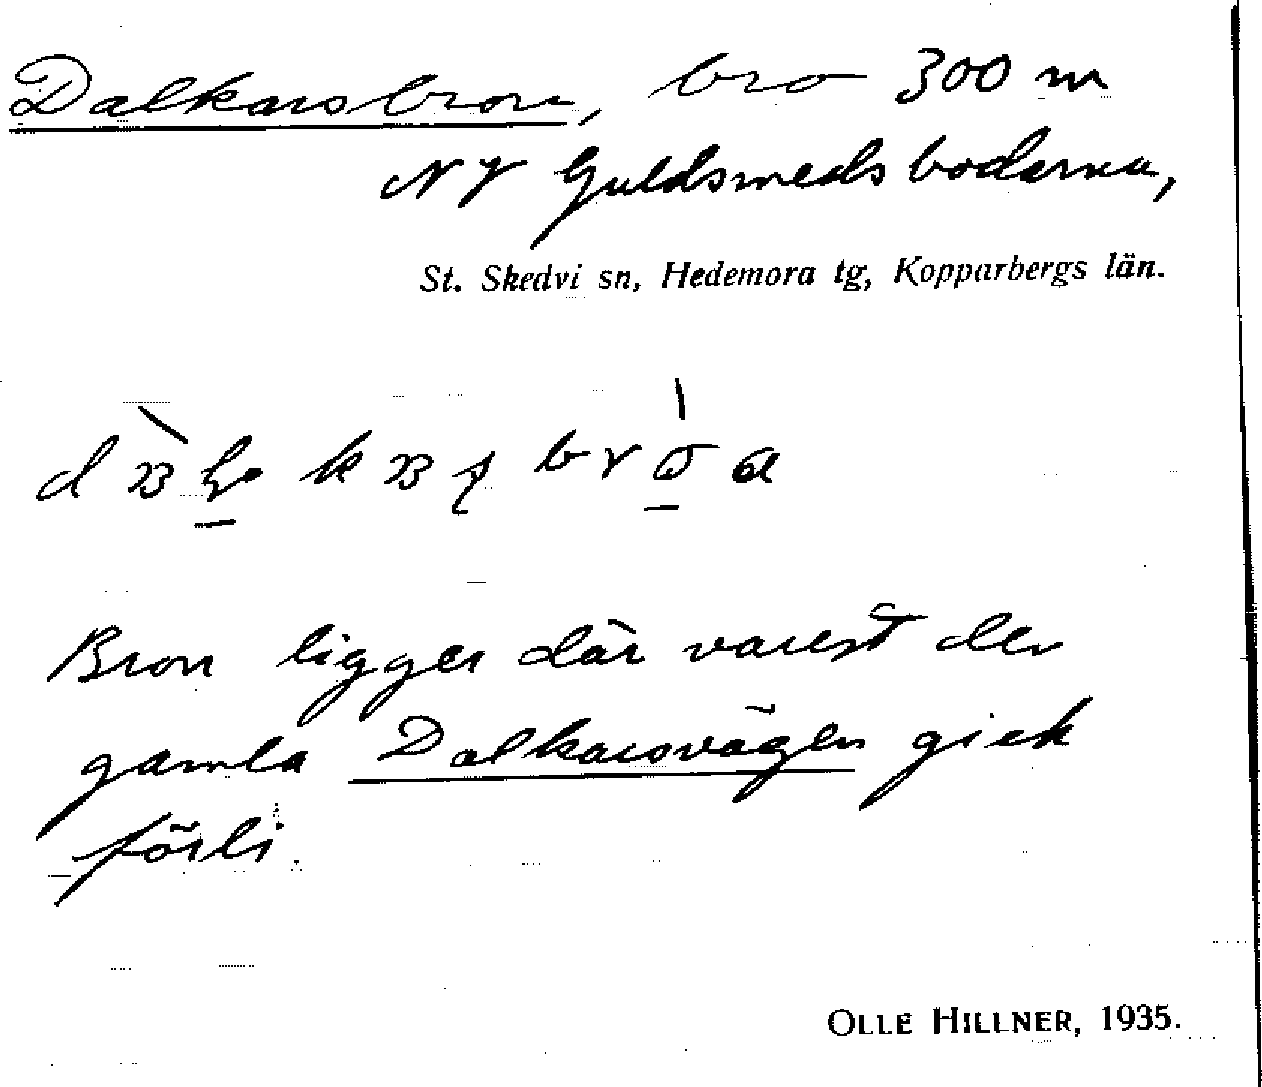 Dalkarsbron, bro 300 m
NV Guldsmedsboderna,
St. Skedvi sn, Hedemora tg, Kopparbergs län.
Bron ligger där varest den
gamla Dalkarsvägen gick
förbi.
OLLE HILLNER, 1935.